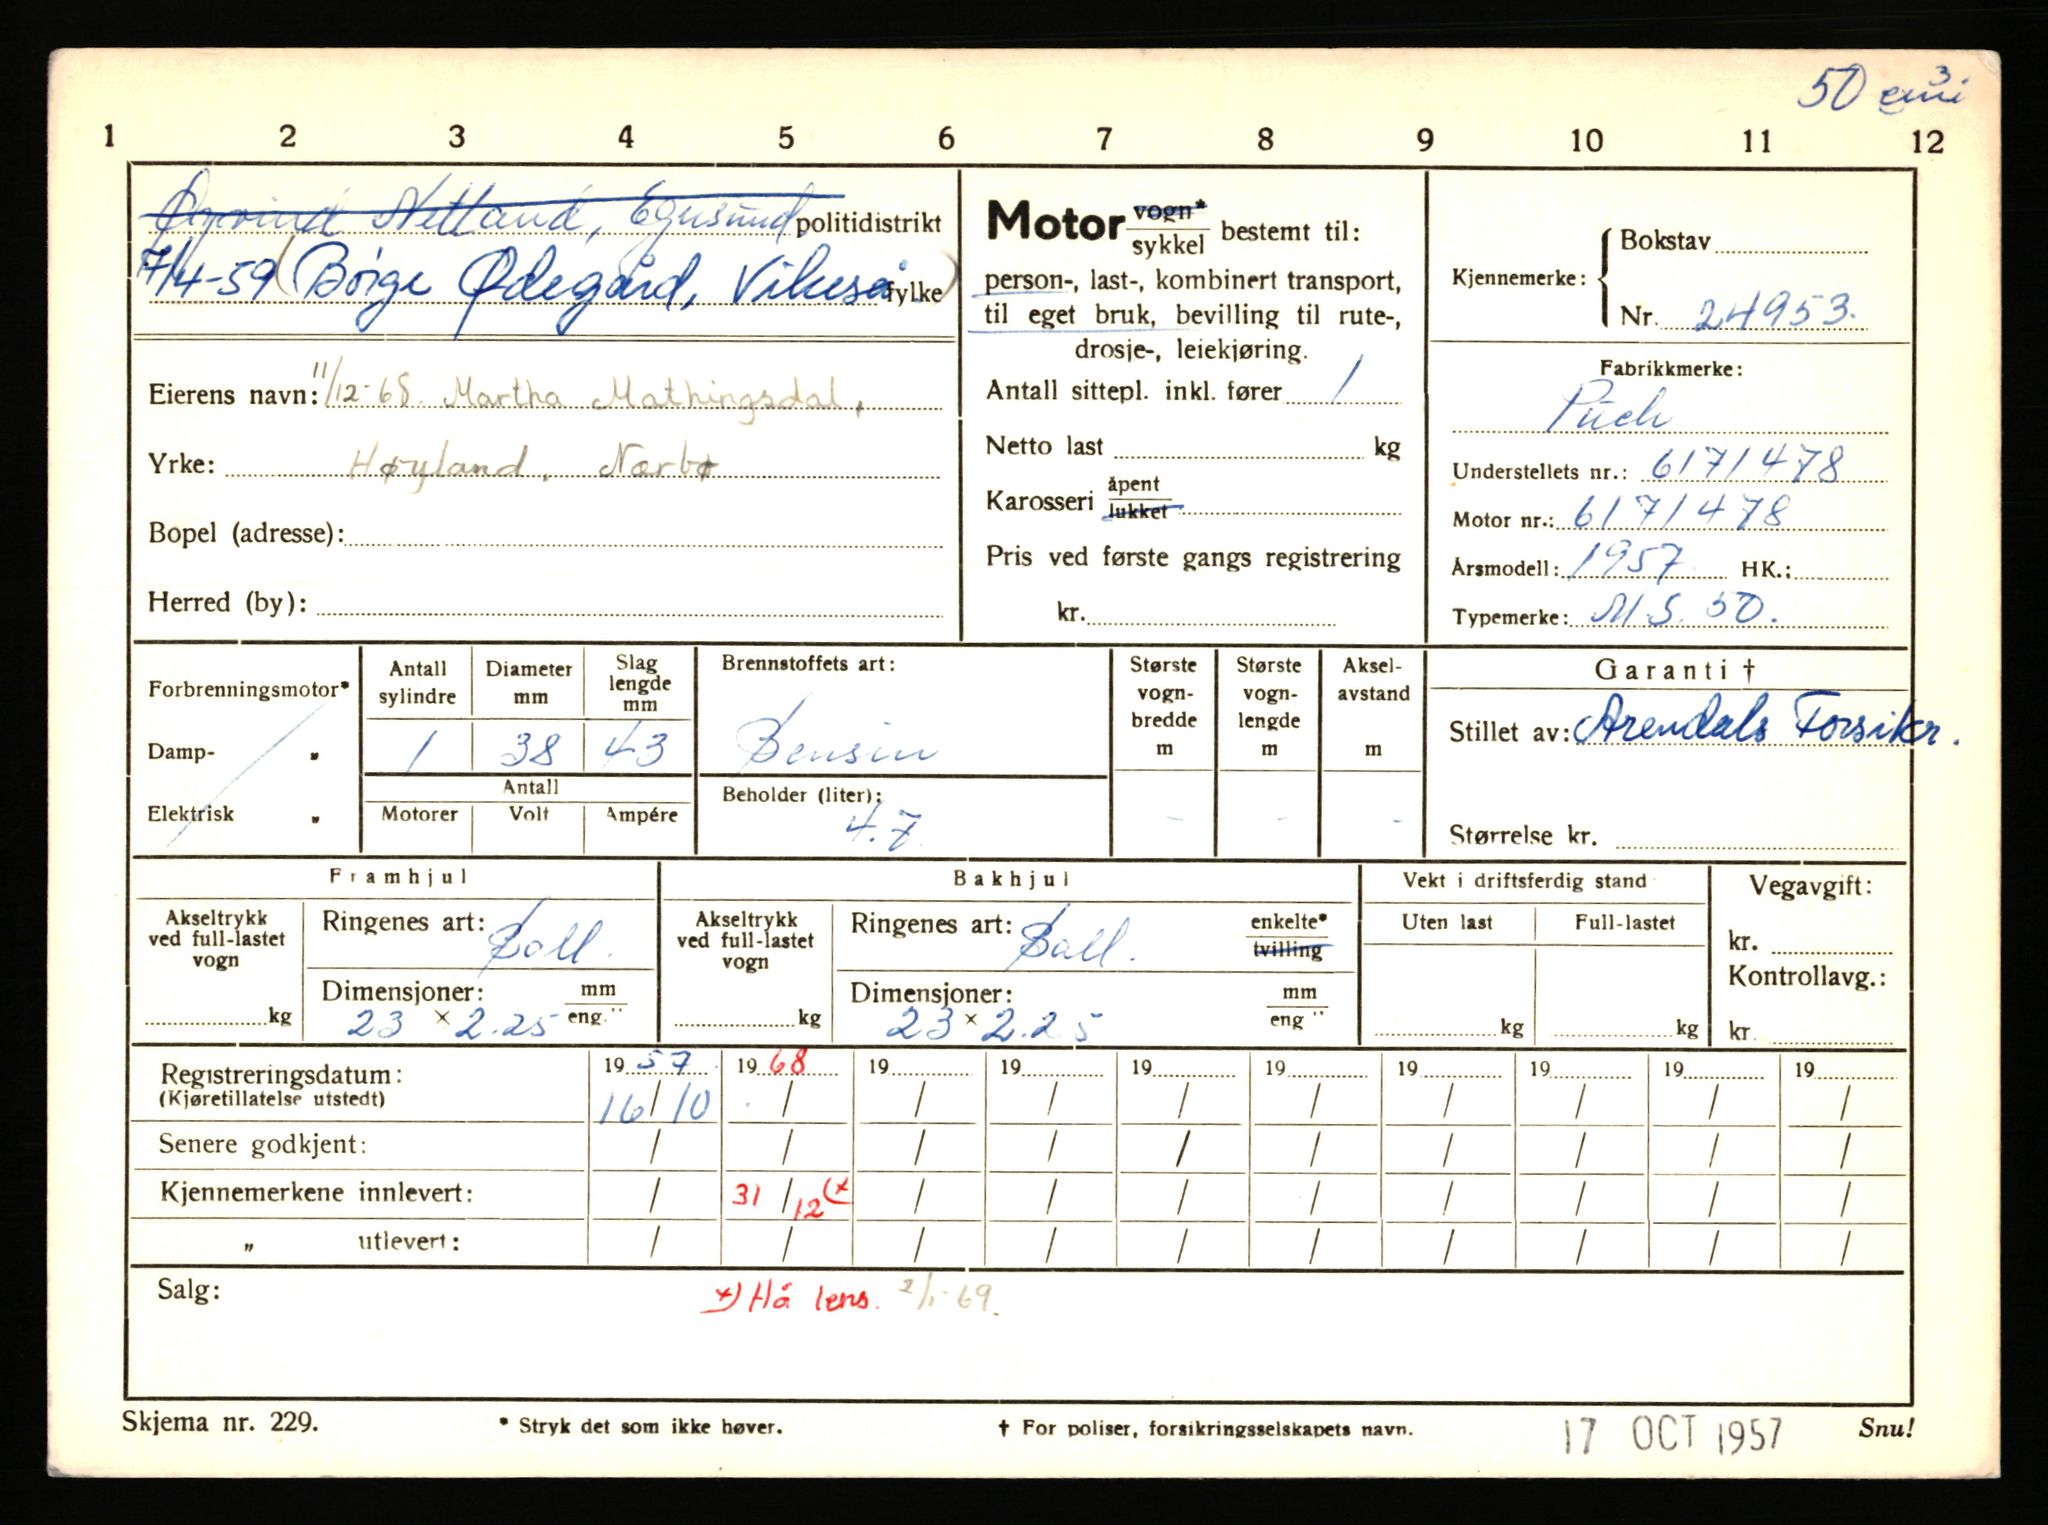 50 cm³
1 2 3 4 5 6 7 8 9 10 11 12
Øyvind Netland, Egersund. politidistrikt
7/4-59 (Börge Ødegård, Vikeså.) fylke
Eierens navn: 11/12-68. Martha Mathingsdal,
Yrke: Høyland, Nærbø
Bopel (adresse):
Herred (by):
Motor vogn* sykkel bestemt til:
person-, last-, kombinert transport,
til eget bruk, bevilling til rute-,
drosje-, leiekjøring.
Antall sittepl. inkl. fører 1
Netto last kg
Karosseri åpent lukket
Pris ved første gangs registrering
kr.
Kjennemerke: Bokstav
Nr. 24953.
Fabrikkmerke:
Puch
Understellets nr.: 6171478
Motor nr.: 6171478
Årsmodell: 1957 HK.:
Typemerke: M.S. 50.
Forbrenningsmotor*
Damp- "
Elektrisk "
Antall sylindre Diameter mm Slag lengde mm
1 38 43
Antall
Motorer Volt Ampére
Brennstoffets art:
Bensin
Beholder (liter):
4.7
Største vogn-bredde m
Største vogn-lengde m
Aksel-avstand m
- - -
Garanti †
Stillet av: Arendals Forsikr.
Størrelse kr.
Framhjul
Akseltrykk ved full-lastet vogn
kg
Ringenes art: Ball.
Dimensjoner: mm eng."
23 × 2.25
Bakhjul
Akseltrykk ved full-lastet vogn
kg
Ringenes art: Ball. enkelte* tvilling
Dimensjoner: mm eng"
23 × 2.25
Vekt i driftsferdig stand
Uten last Full-lastet
kg kg
Vegavgift:
kr.
Kontrollavg.:
kr.
Registreringsdatum: 19 57 19 68 19 19 19 19 19 19 19 19
(Kjøretillatelse utstedt) 16/10 / / / / / / / / /
Senere godkjent: / / / / / / / / / /
Kjennemerkene innlevert: / 31/12 (x / / / / / / / /
" utlevert: / / / / / / / / / /
Salg: x) Hå lens. 2/1-69.
Skjema nr. 229. * Stryk det som ikke høver. † For poliser, forsikringsselskapets navn. 17 OCT 1957 Snu!